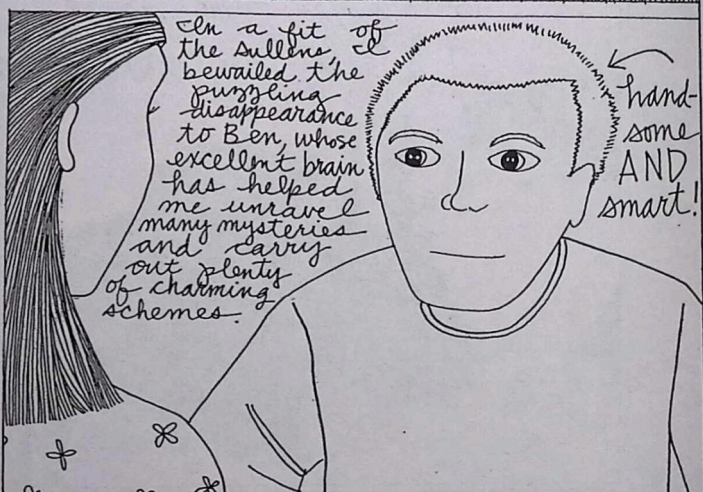 In a fit of
the sullens, I
bewailed the
puzzling
disappearance
to Ben, whose
excellent brain
has helped
me unravel
many mysteries
and carry
out plenty
of charming
schemes.
hand-
some
AND
smart!